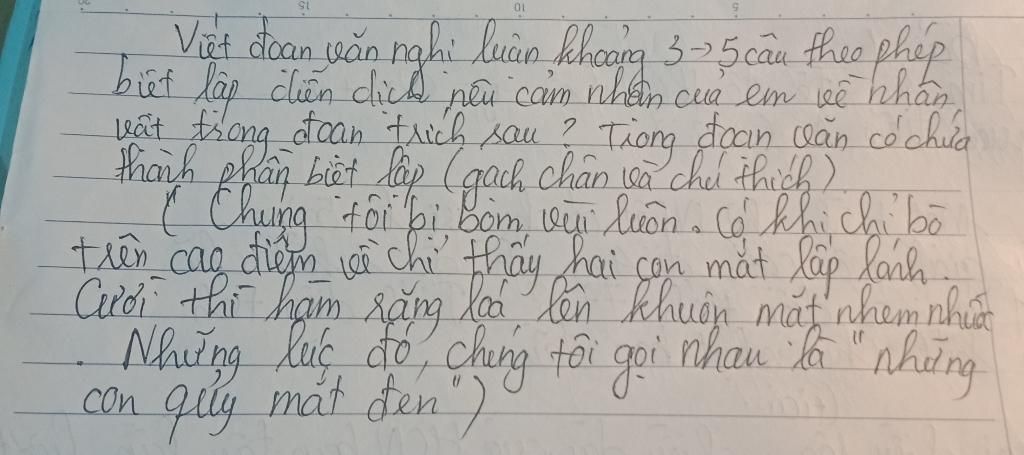 Viết đoạn văn nghị luận khoảng 3→5 câu theo phép
biết lập diễn dịch, nêu cảm nhận của em về nhân
vật trong đoạn trích sau? Trong đoạn văn có chứa
thành phần biệt lập (gạch chân và chú thích)
( Chúng tôi bị bom vùi luôn. Có khi chỉ bò
trên cao điểm về chỉ thấy hai con mắt lấp lánh.
Cười thì hàm răng loá lên khuôn mặt nhem nhuốc
. Những lúc đó, chúng tôi gọi nhau là "những
con quỷ mắt đen")